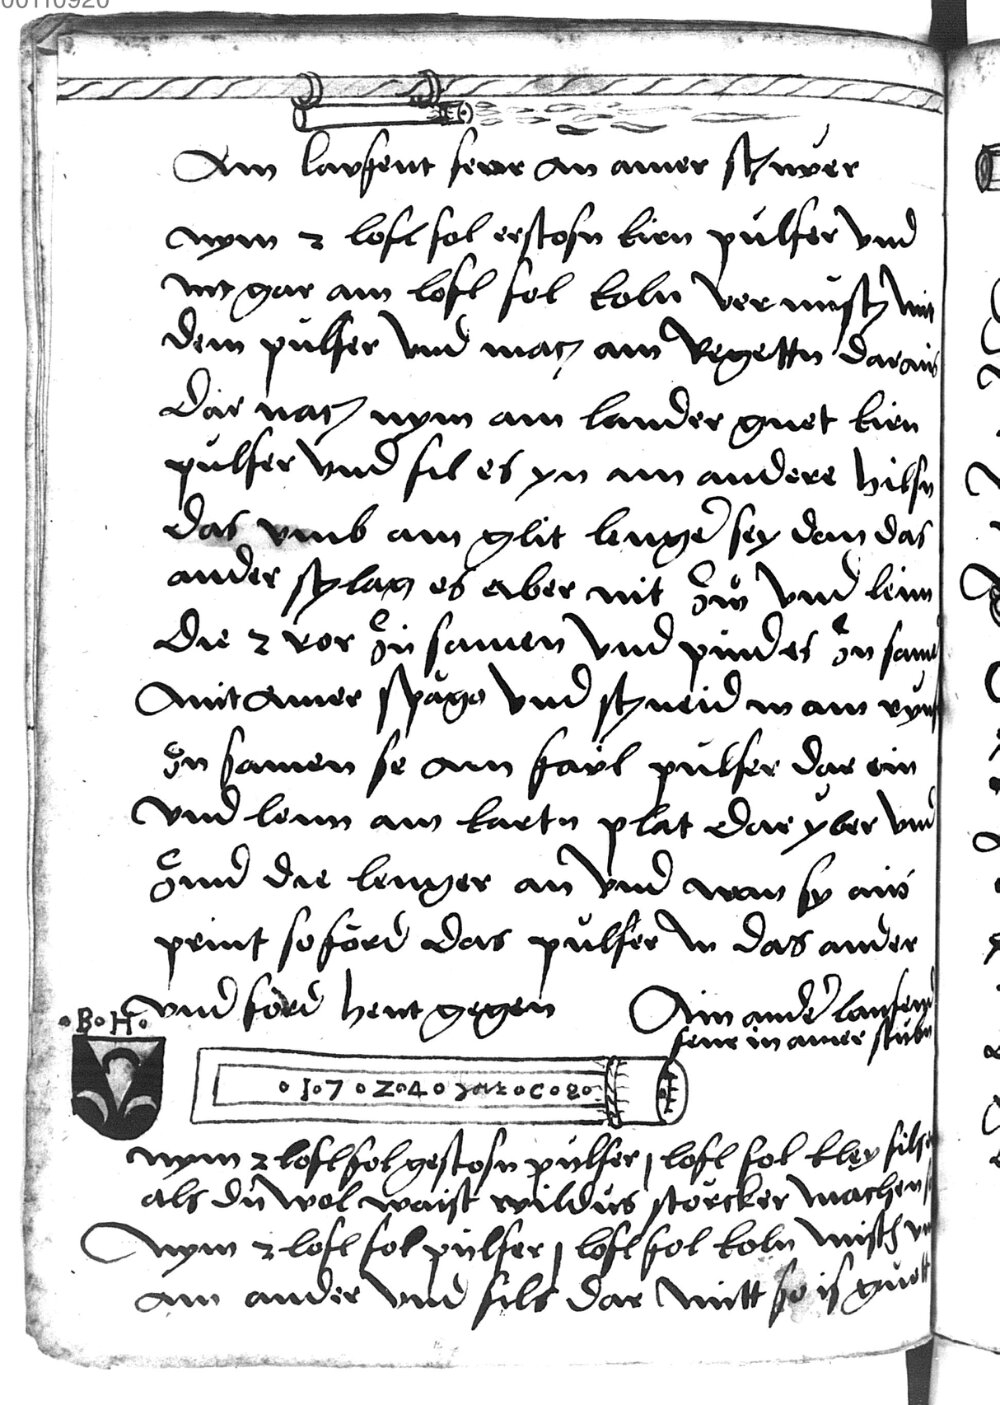 00110920
Am lauffent feuer an amer schnuer
nym 2 lofl fol erstosn kirn pulfer vnd
nit gar am lofl fol koln vermusch mit
dem pulfer vnd mach am Regettn daraus
Dar nach nym am lander guet kirn
pulfer vnd fil es yn am andere hilsn
das vmb am glit lenger sey dan das
ander schlach es aber nit zw vnd leim
Die 2 ror zu samen vnd pind es zu same
mit amer spago vnd schneid in am
zu samen se am faul pulfer dar ein
vnd leim am kartn plat dar yber vnd
zund die lenger an vnd wan sy aus
print so ford das pulfer in das ander
vnd ford hent gegen
Ain ander laufend
feur in amer stubn
·B·H·
nym 2 lofl fol gestosn pulfer 1 lofl fol kley fils
als du wol waist wildus storcker machen
Nym 2 lofl fol pulfer 1 lofl fol koln misch
am ander vnd fils dar mitt so is guett